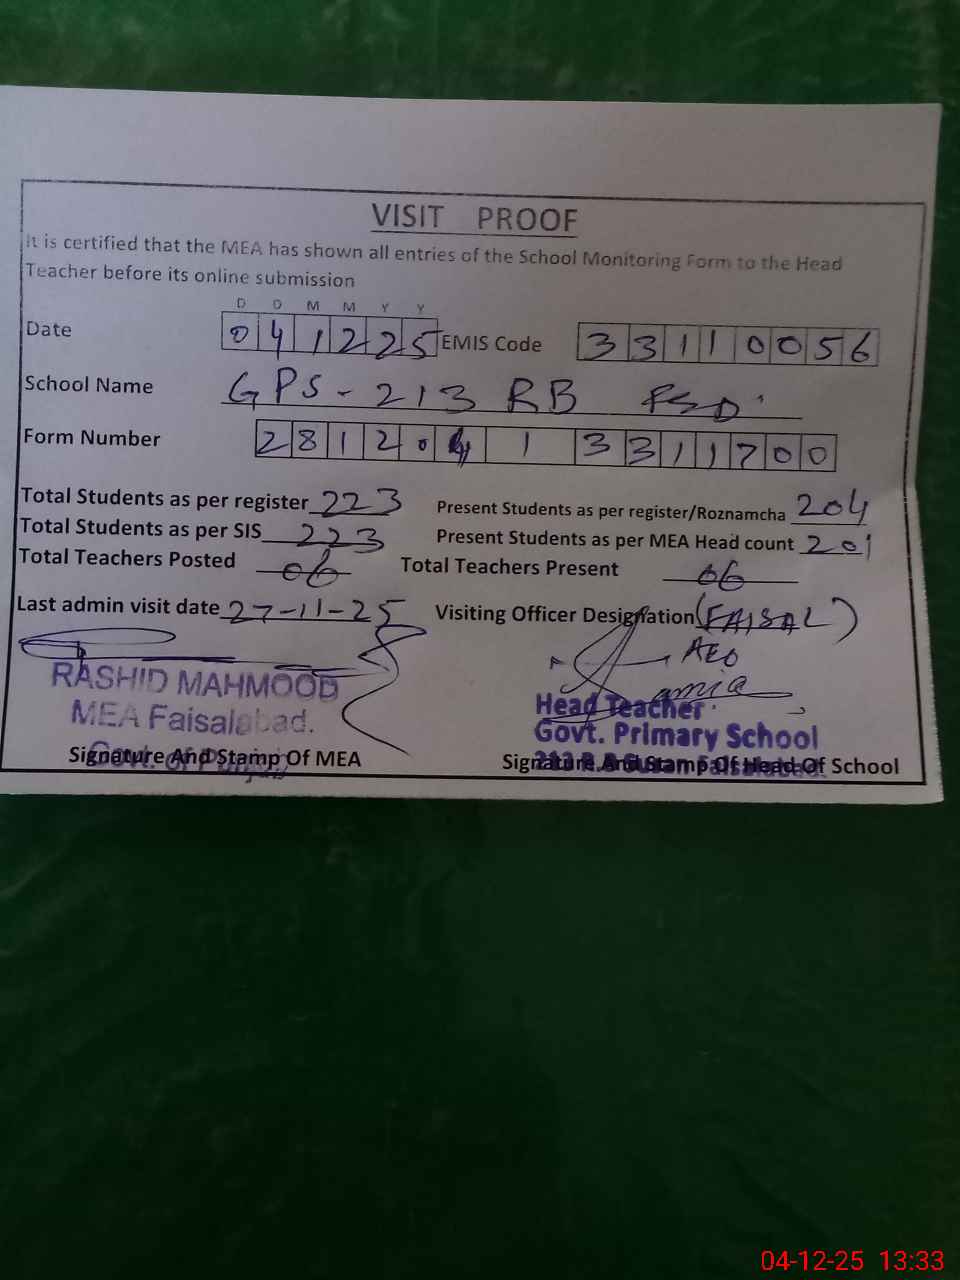 VISIT PROOF
It is certified that the MEA has shown all entries of the School Monitoring Form to the Head
Teacher before its online submission
D D M M Y Y
Date 0 4 1 2 2 5 EMIS Code 3 3 1 1 0 0 5 6
School Name GPS - 213 RB FSD
Form Number 2 8 1 2 0 4 1 3 3 1 1 7 0 0
Total Students as per register 223 Present Students as per register/Roznamcha 204
Total Students as per SIS 223 Present Students as per MEA Head count 201
Total Teachers Posted 06 Total Teachers Present 06
Last admin visit date 27-11-25 Visiting Officer Designation (FAISAL)
AEO
RASHID MAHMOOD
MEA Faisalabad.
Govt. of Punjab
Signature And Stamp Of MEA
Head Teacher
Govt. Primary School
213 R.B Faisalabad.
Signature And Stamp Of Head Of School
04-12-25 13:33